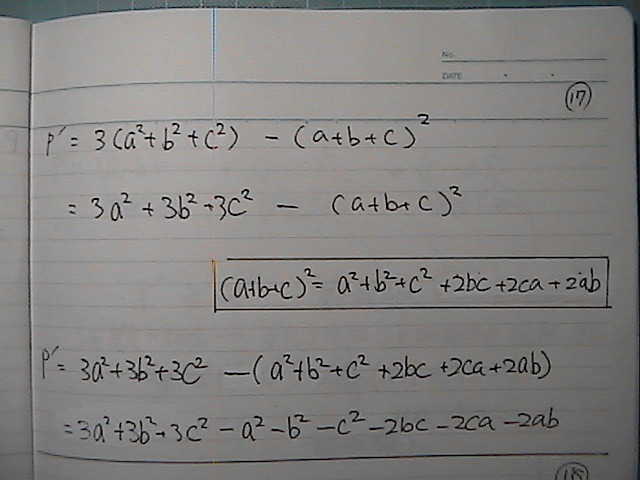 No.
DATE
⑰
P' = 3(a²+b²+c²) - (a+b+c)²
= 3a² + 3b² + 3c² - (a+b+c)²
(a+b+c)² = a²+b²+c² +2bc+2ca+2ab
P' = 3a²+3b²+3c² - (a²+b²+c² +2bc+2ca+2ab)
= 3a²+3b²+3c² - a² - b² - c² - 2bc - 2ca - 2ab